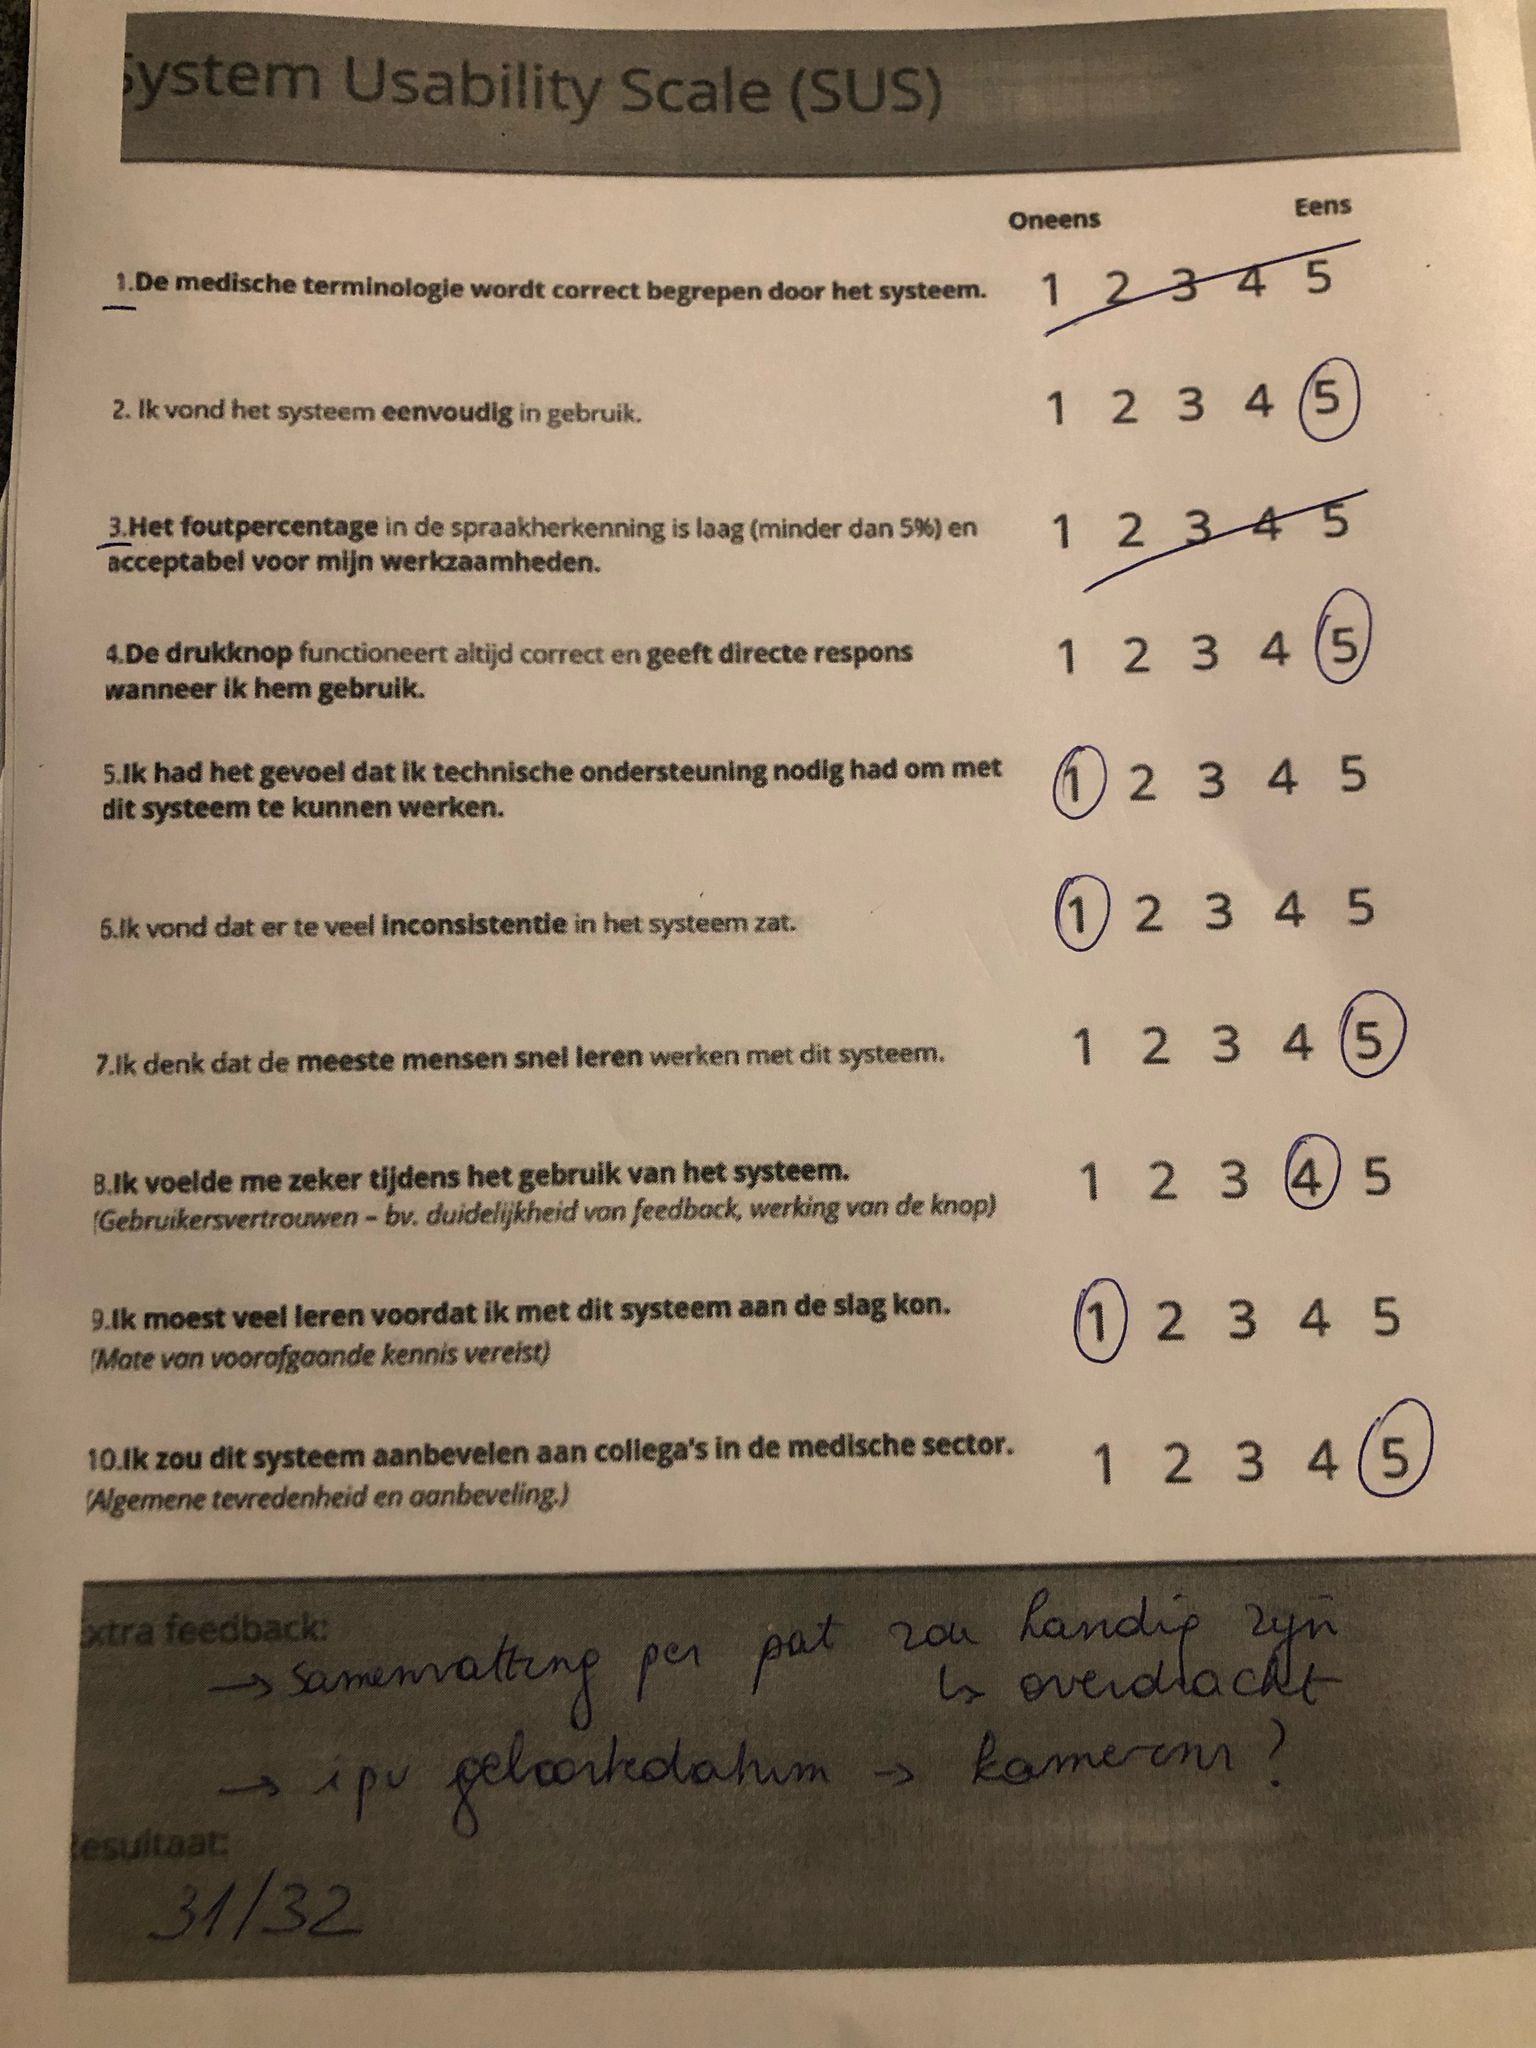 System Usability Scale (SUS)
Oneens Eens
1.De medische terminologie wordt correct begrepen door het systeem. 1 2 3 4 5
2. Ik vond het systeem eenvoudig in gebruik. 1 2 3 4 5
3.Het foutpercentage in de spraakherkenning is laag (minder dan 5%) en 1 2 3 4 5
acceptabel voor mijn werkzaamheden.
4.De drukknop functioneert altijd correct en geeft directe respons 1 2 3 4 5
wanneer ik hem gebruik.
5.Ik had het gevoel dat ik technische ondersteuning nodig had om met 1 2 3 4 5
dit systeem te kunnen werken.
6.Ik vond dat er te veel inconsistentie in het systeem zat. 1 2 3 4 5
7.Ik denk dat de meeste mensen snel leren werken met dit systeem. 1 2 3 4 5
8.Ik voelde me zeker tijdens het gebruik van het systeem. 1 2 3 4 5
(Gebruikersvertrouwen – bv. duidelijkheid van feedback, werking van de knop)
9.Ik moest veel leren voordat ik met dit systeem aan de slag kon. 1 2 3 4 5
(Mate van voorafgaande kennis vereist)
10.Ik zou dit systeem aanbevelen aan collega's in de medische sector. 1 2 3 4 5
(Algemene tevredenheid en aanbeveling.)
Extra feedback:
→ samenvatting per pat zou handig zijn
↳ overdracht
→ ipv geboortedatum → kamernr?
Resultaat:
31/32